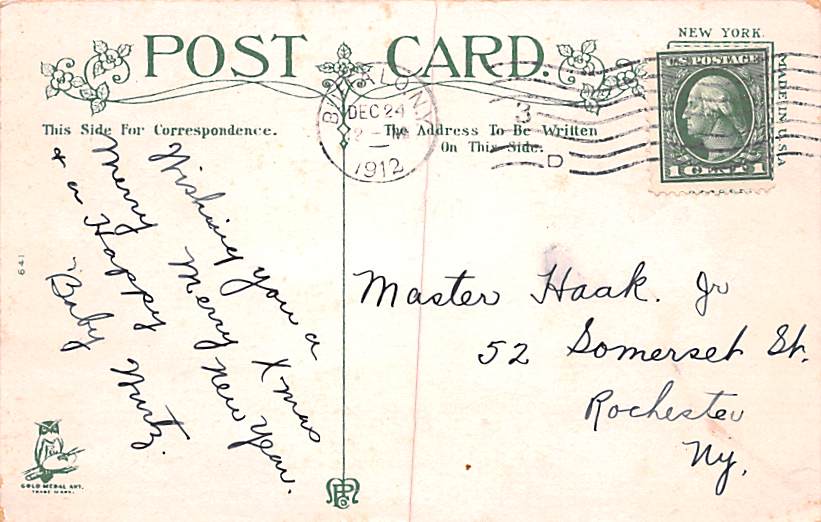 POST CARD.
This Side For Correspondence.
The Address To Be Written
On This Side.
NEW YORK.
MADE IN U.S.A
U.S. POSTAGE
1 CENT 1
DEC 24
1912
3
D
Wishing you a
Merry Merry X-mas
& a Happy New Year.
Baby Wurtz.
Master Haak. Jr
52 Somerset St.
Rochester
Ny.
641
GOLD MEDAL ART.
TRADE MARK.